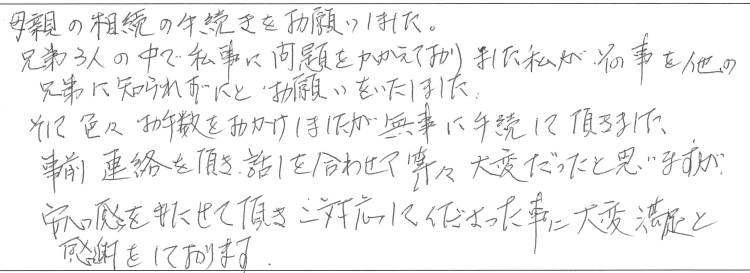 母親の相続の手続きをお願いしました。
兄弟3人の中で私事に問題をかかえておりました私が、その事を他の
兄弟に知られずにとお願いをいたしました。
そして色々お手数をおかけしましたが無事に手続して頂きました、
事前連絡を頂き、話しを合わせて等々大変だったと思いますが、
安心感を持たせて頂きご対応してくださった事に大変満足と
感謝をしております.